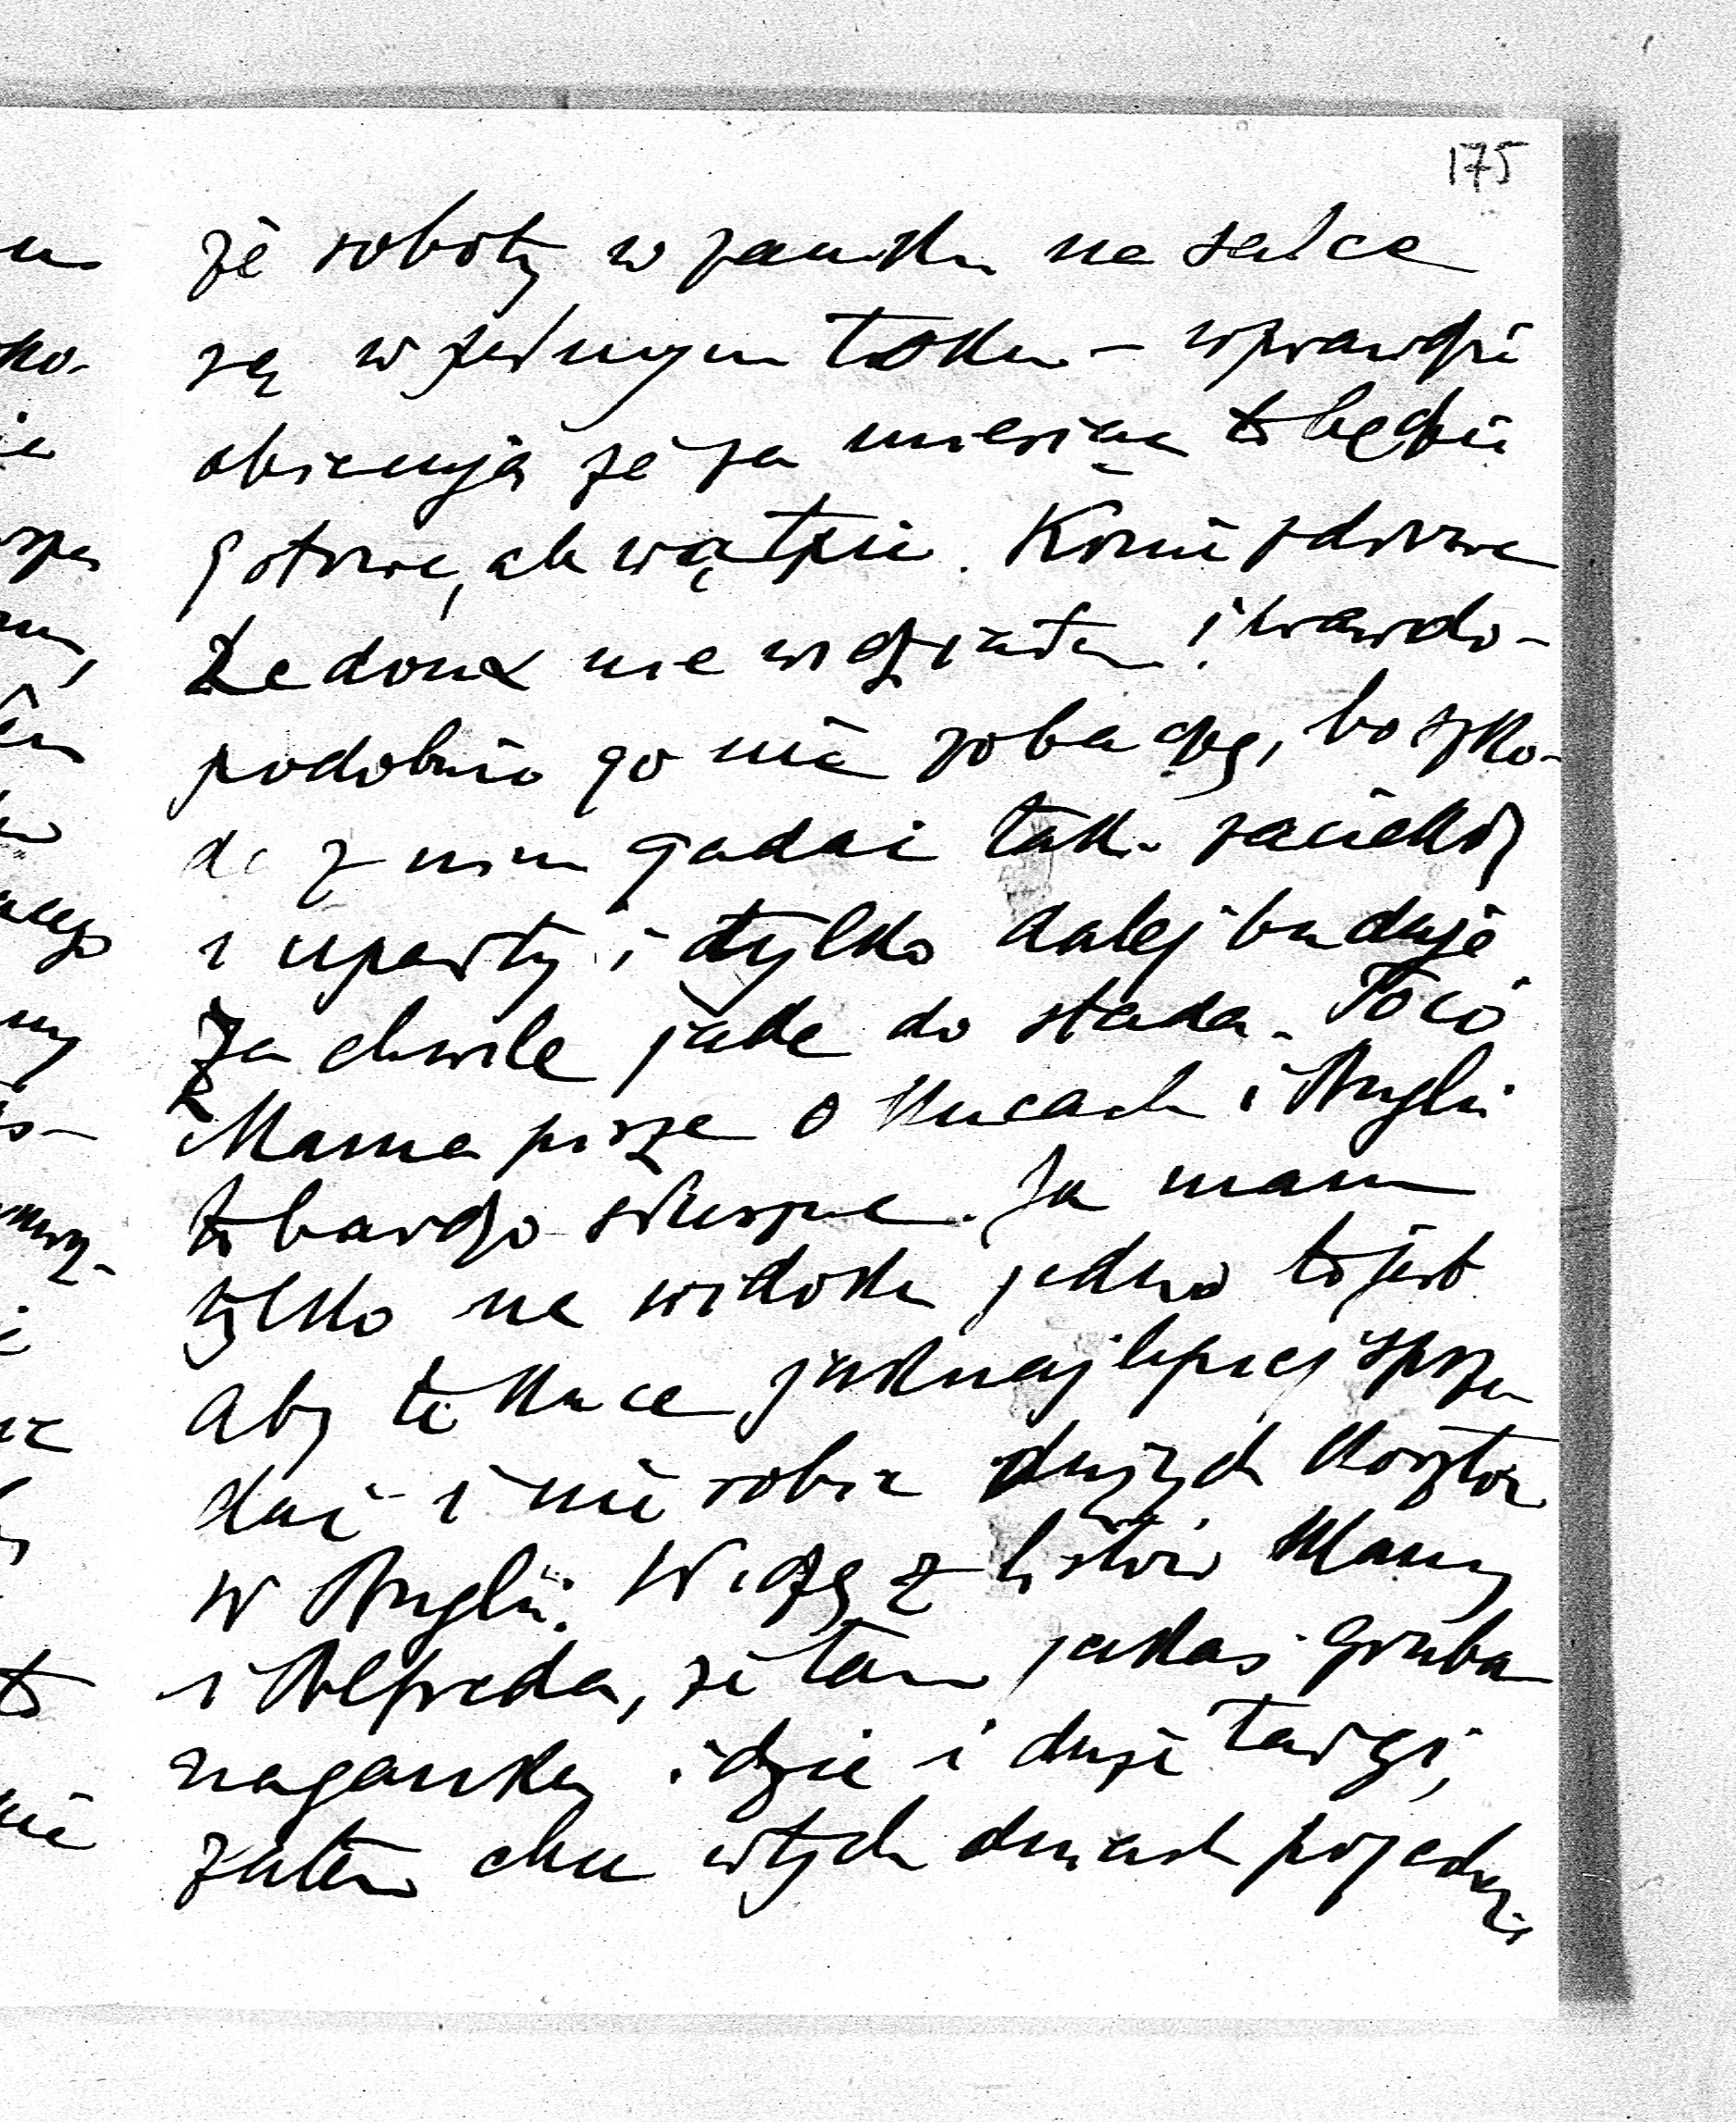 175
że roboty w zamku na salce
są w pełnym toku – wprawdzie
obiecują że za miesiąc to będzie
gotowe, ale wątpię. Konie zdrowe
Ledoux nie widziałem i prawdo-
podobnie go nie zobaczę, bo szko-
da z nim gadać tak zaciekły
i uparty i tylko dalej buduje.
Za chwile jade do stada. To co
Mama pisze o kucach i Anglii
to bardzo słuszne. Ja mam
tylko na widoku jedno to jest
aby te kuce jaknajlepiej sprze
dać i nie robić dużych kosztów
w Anglii. Widzę z listów Mamy
i Alfreda, że tam jakaś gruba
naganka idzie i duże targi,
zatem chce w tych dniach pojechać